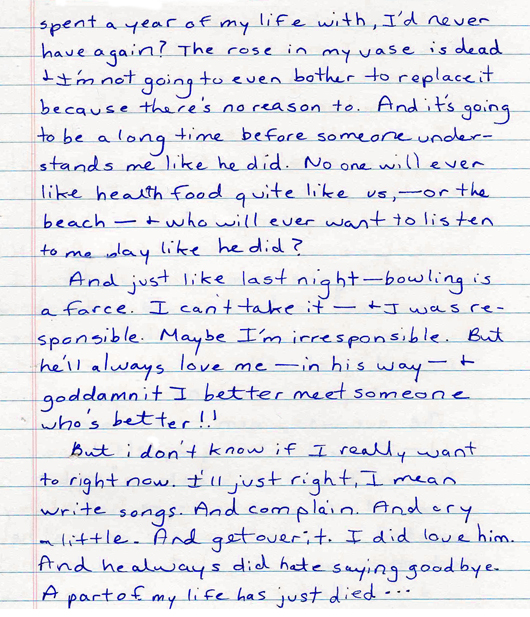 spent a year of my life with, I'd never
have again? The rose in my vase is dead
+ I'm not going to even bother to replace it
because there's no reason to. And it's going
to be a long time before someone under-
stands me like he did. No one will ever
like health food quite like us, — or the
beach — + who will ever want to listen
to me play like he did?
And just like last night — bowling is
a farce. I can't take it — + I was re-
sponsible. Maybe I'm irresponsible. But
he'll always love me — in his way — +
goddamnit I better meet someone
who's better!!
But i don't know if I really want
to right now. I'll just right, I mean
write songs. And complain. And cry
a little. And get over it. I did love him.
And he always did hate saying goodbye.
A part of my life has just died...